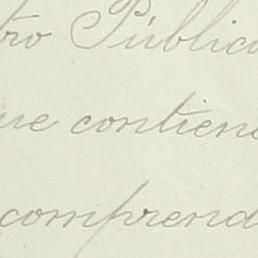 tro Públic
ue contien
comprend